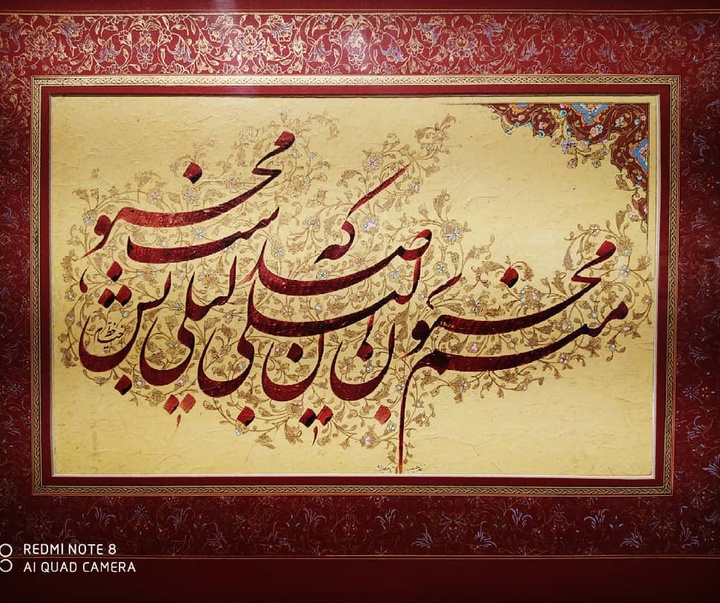 منم مجنون آن لیلی که صد لیلی است مجنونش
REDMI NOTE 8
AI QUAD CAMERA